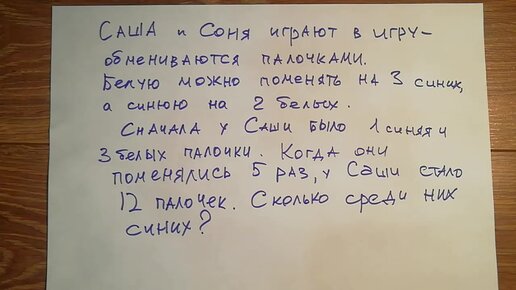 Саша и Соня играют в игру -
обмениваются палочками.
Белую можно поменять на 3 синих,
а синюю на 2 белых.
Сначала у Саши было 1 синяя и
3 белых палочки. Когда они
поменялись 5 раз, у Саши стало
12 палочек. Сколько среди них
синих?